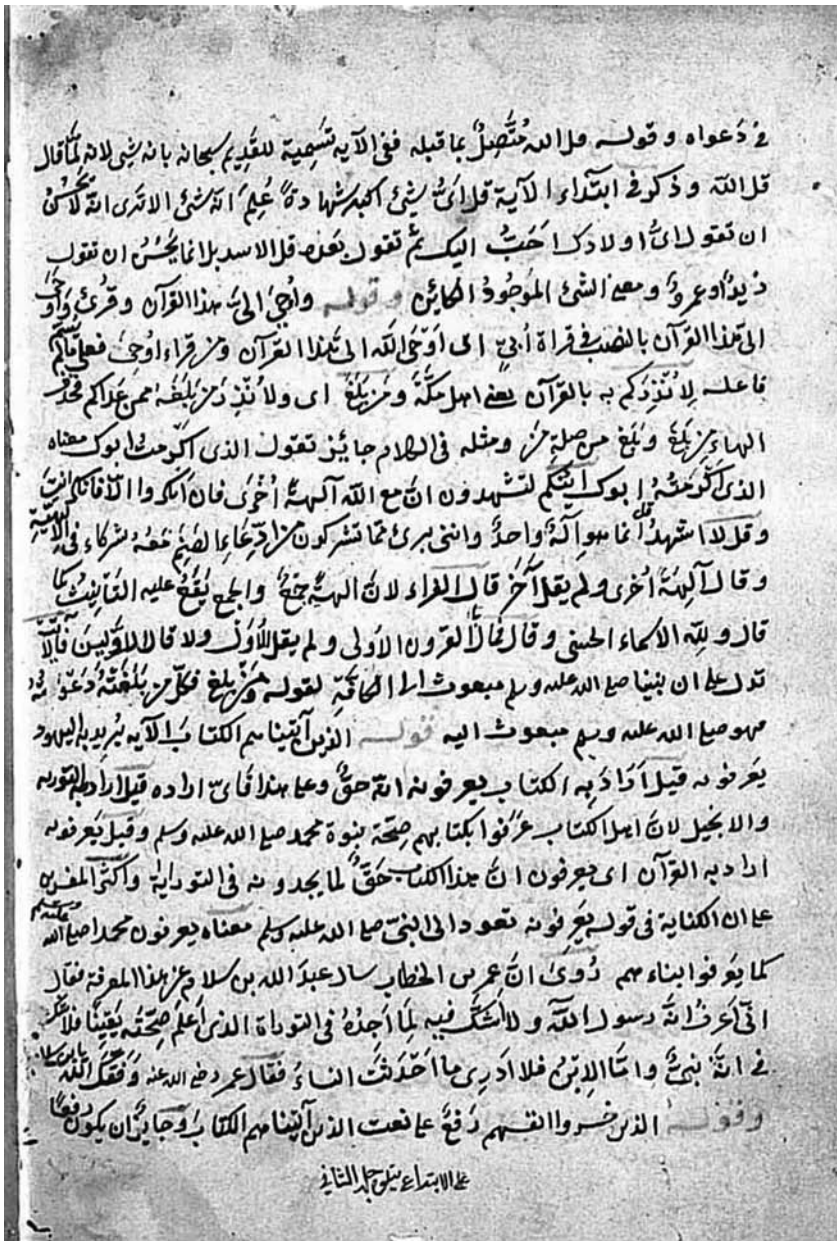 في دَعواه وقوله قل الله مُتَّصِلٌ بما قبله ففي الآيه تسمية للقديم سبحانه بانه شي لانه لمّا قال
قل الله وذكر في ابتداء الآية قل ايُّ شيئ اكبر شهادةً عُلِمَ انه شئ الا ترى انه لا يحسُنُ
ان تقول ايُّ اولادك احَبُّ اليك ثم تقول بعده قل الاسد بل انما يحسُنُ ان تقول
زيدٌ او عمروٌ ومعنى الشئ الموجودُ الكائن وقوله واُوحِيَ اليَّ هذا القرآن وقرئ واَوحَى
اليّ هذا القرآن بالنصب في قراة اُبيّ اى اَوحَى الله اليَّ هذا القرآن ومن قراء اوحِيَ فعلى ما لم يُسَمَّ
فاعله لِاُنذِركم به بالقرآن يعنى اهل مكّةَ ومَن بَلغَ اى ولاُنذِرَ مَن بَلَغَهُ ممن عداكم فحذف
الهاء من بلغ وبَلغ من صلةِ مَن ومثله في الكلام جائز تقول الذى اكرمت ابوك معناه
الذى اكرمتَهُ ابوك أَئِنَّكم لتشهدون انّ مع الله آلهةً اُخرَى فان انكروا
وقل لا اشهدُ قل انما هو اِلَهٌ واحدٌ واننى برئ مما تشركون من شركاء في
وقال آلهةً اُخرى ولم يقل آخَرَ قال الفراء لان الهةً جمعٌ والجمع يَقَعُ عليه التانيث كما
قال ولله الاسماء الحسنى وقال فما بالُ القرون الاُولى ولم يقل الأوَل ولا قال الاوّلينَ فالآية
تدل على ان نبينا صلى الله عليه وسلم مبعوث الى الكافّةِ لقوله ومَن بلغ فكلّ من بَلَغَتْهُ دَعْوَتُهُ
فهو صلى الله عليه وسلم مبعوث اليه قوله الذين آتيناهم الكتابَ الآيه يُرِيد به اليهود
يعرفونه قيل اَرَادَ بِه الكتاب يعرفونه انه حقٌّ وعلى هذا فاىّ اراده قيل اراد به التورية
والانجيل لانّ اهل الكتاب عرَفوا بكتابهم صِحّة نبوة محمد صلى الله عليه وسلم وقيل يَعرفونه
اراد به القرآن اى يعرفون انّ هذا الكتاب حقٌّ لما يجدونه في التوراية واكثر المفسرين
على ان الكناية في قوله يَعرِفونه تعود الى النبيّ صلى الله عليه وسلم معناه يعرفون محمدا صلى الله عليه وسلم
كما يعرفوا بناءهم رُوِىَ انّ عمر بن الخطاب سال عبدَ الله بن سلام عن هذا المعرفة فقال
انّى اَعرفُ انهُ رسول الله ولا اَشكّ فيه لِمَا اَجدُهُ في التوراة الذى اَعلَمُ صِحّتَه يقينًا فلا
في انّهُ نبىٌّ وامّا الاِبنُ فلا ادرِى ما اَحدَثتَ النساءُ فقال عمر رضي الله عنه وفّقك الله يا ابن سلام
وقوله الذين خسروا انفسهم رَفعٌ على نعت الذين آتيناهم الكتاب وجايز ان يكون رفعًا
على الابتداء يتلوه جلد الثاني